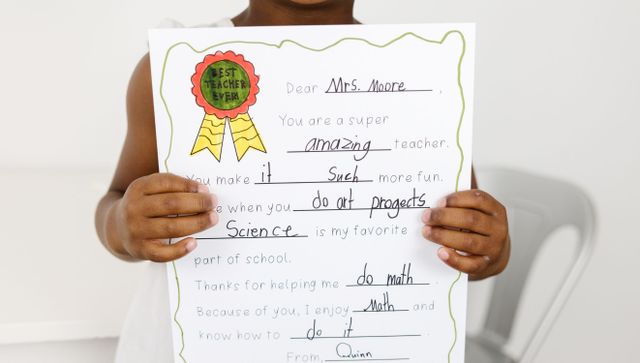 BEST
TEACHER
EVER!
Dear Mrs. Moore,
You are a super
amazing teacher.
You make it such more fun.
when you do art progects
Science is my favorite
part of school.
Thanks for helping me do math.
Because of you, I enjoy Math and
know how to do it.
From, Quinn